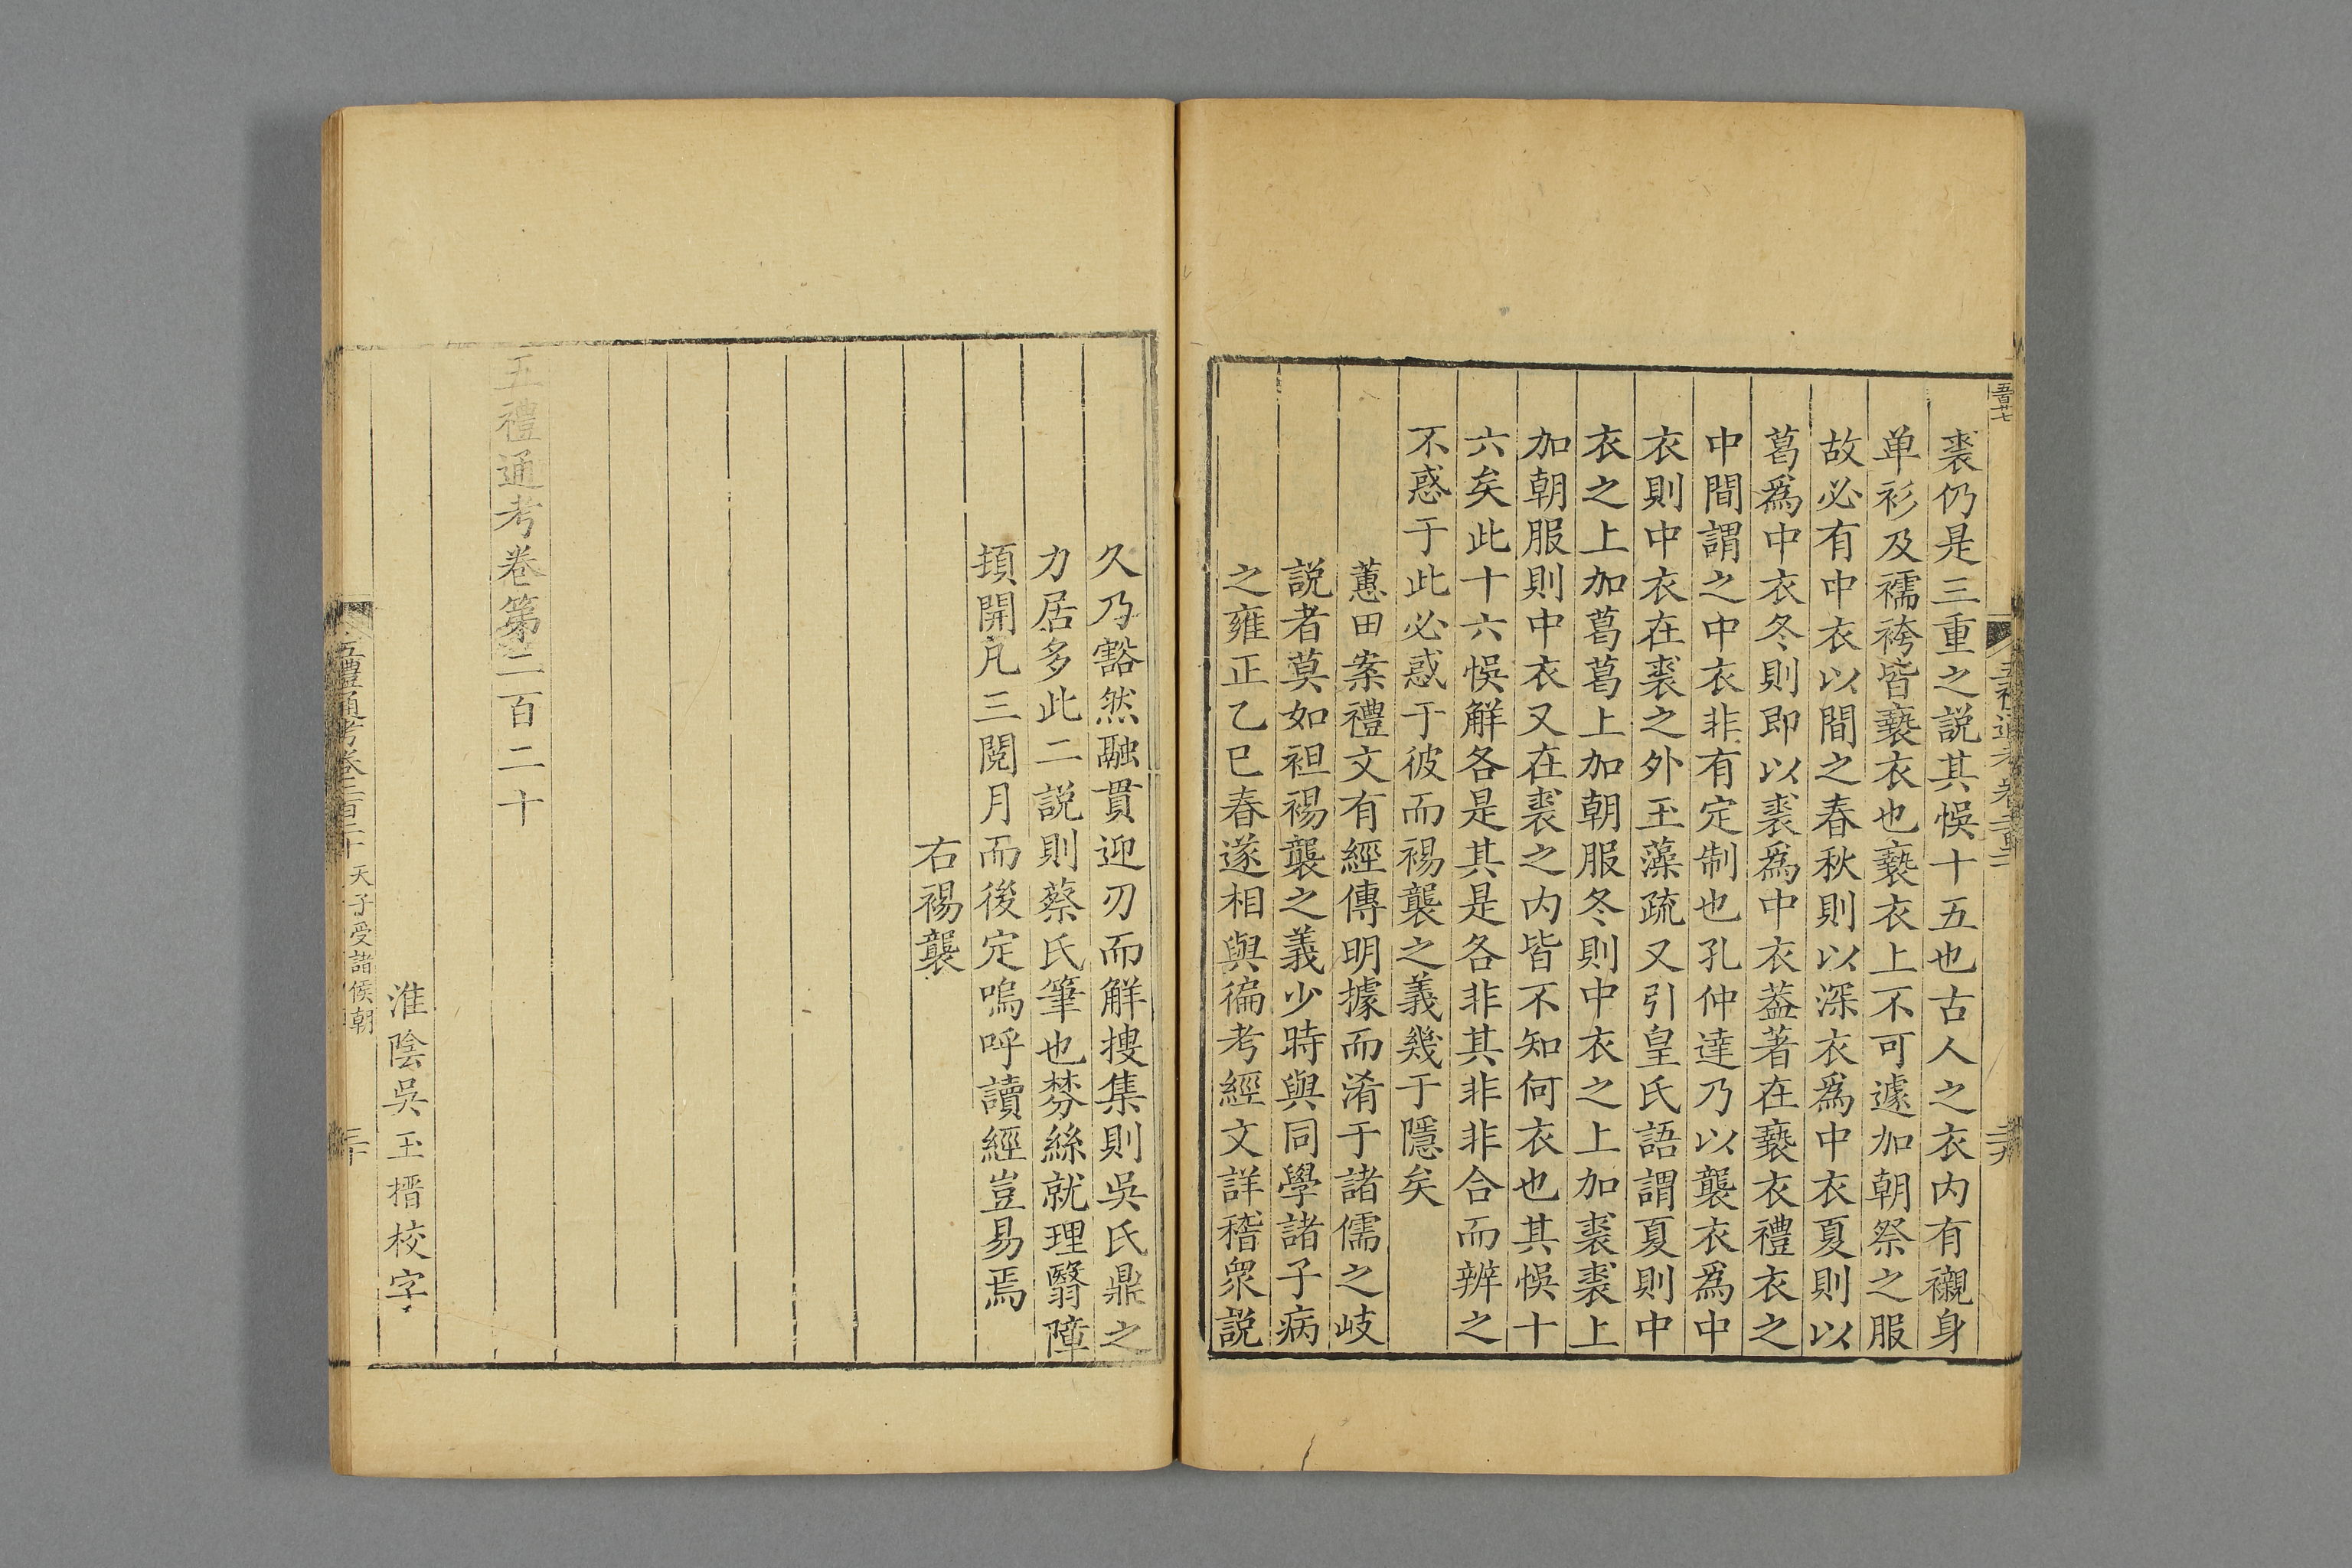 裘仍是三重之説其悞十五也古人之衣内有襯身
单衫及襦袴皆褻衣也褻衣上不可遽加朝祭之服
故必有中衣以間之春秋則以深衣爲中衣夏則以
葛爲中衣冬則即以裘爲中衣葢著在褻衣禮衣之
中間謂之中衣非有定制也孔仲達乃以襲衣爲中
衣則中衣在裘之外玉藻疏又引皇氏語謂夏則中
衣之上加葛葛上加朝服冬則中衣之上加裘裘上
加朝服則中衣又在裘之内皆不知何衣也其悞十
六矣此十六悞解各是其是各非其非非合而辨之
不惑于此必惑于彼而裼襲之義幾于隱矣
蕙田案禮文有經傳明據而淆于諸儒之岐
説者莫如袒裼襲之義少時與同學諸子病
之雍正乙巳春遂相與徧考經文詳稽衆説
久乃豁然融貫迎刃而解搜集則吳氏鼎之
力居多此二説則蔡氏筆也棼絲就理翳障
頓開凡三閱月而後定嗚呼讀經豈易焉
右裼襲
五禮通考卷第二百二十
淮陰吳玉搢校字
五禮通考卷二百二十 天子受諸侯朝 三十